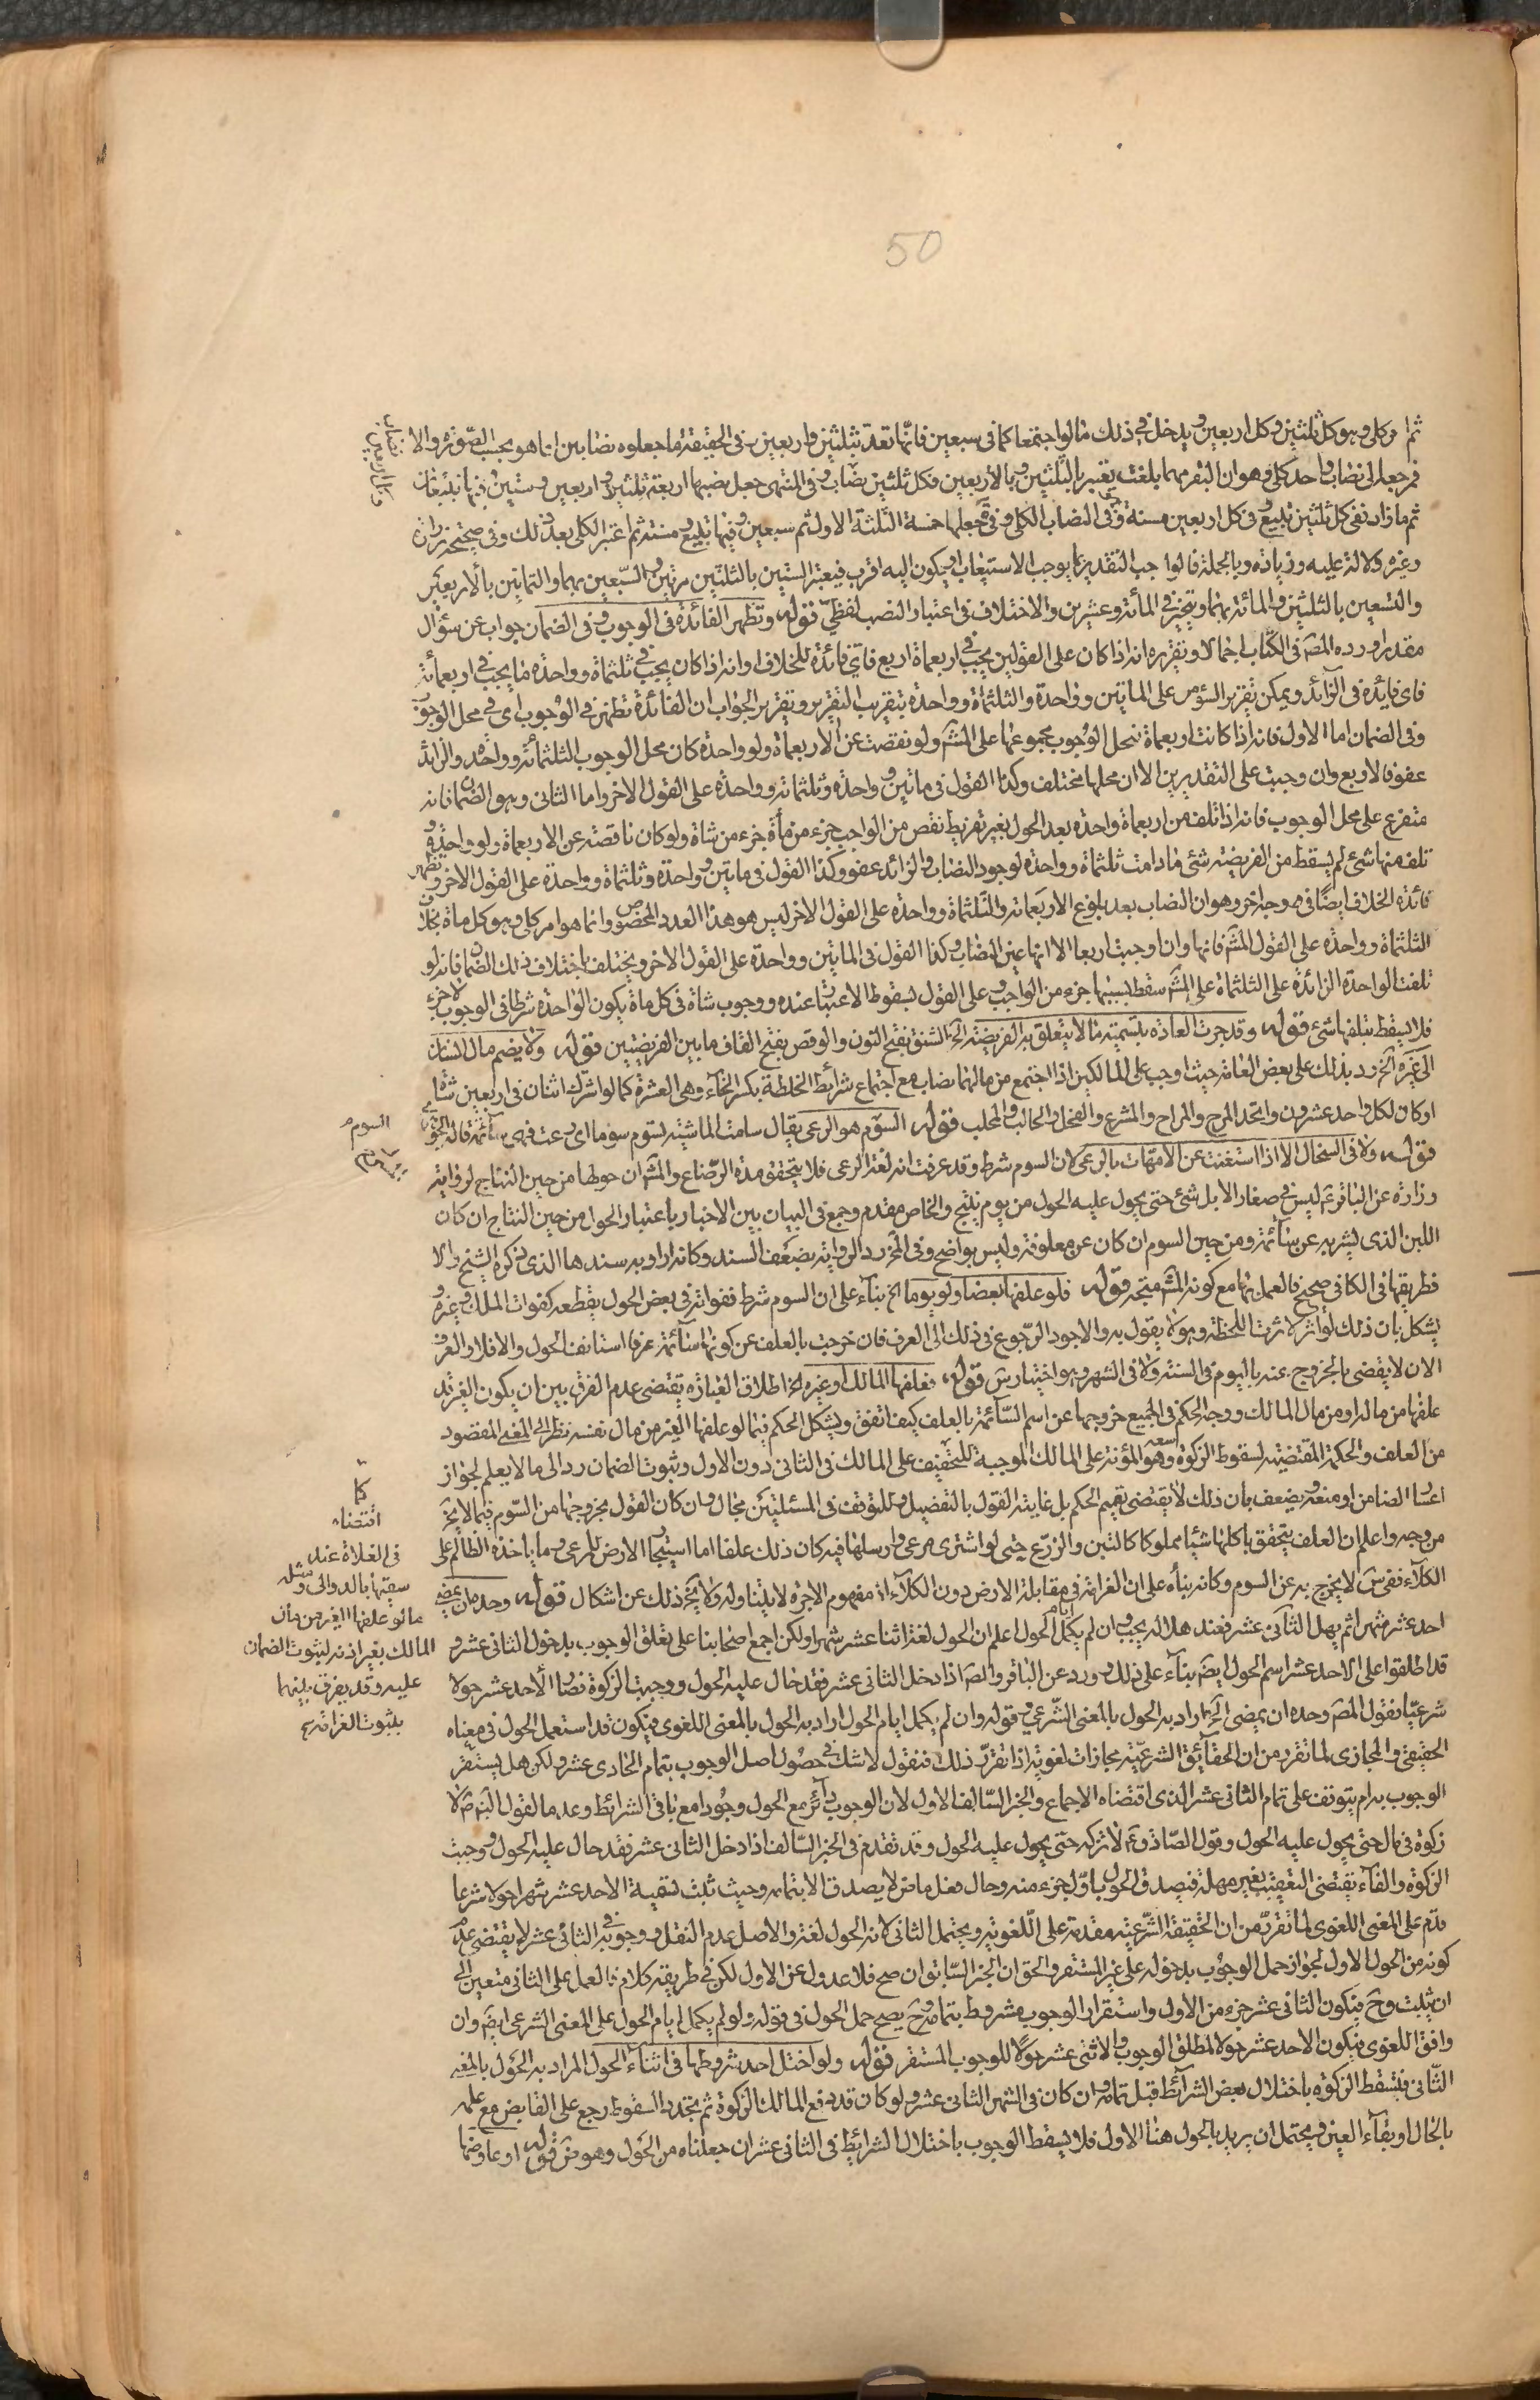 50
ثم امر كلي وهو كل ثلثين وكل اربعين ويدخل في ذلك ما لو اجتمعا كما في سبعين فانها تعد بثلثين واربعين في الحقيقة ما جعلوه نصابين انما هو بحسب الصورة والا
فمرجعها الى نصاب واحد كلي وهو ان البقر مهما بلغت يعتبر بالثلثين وبالاربعين فكل ثلثين نصاب وفي المنتهى جعل نصبها اربعة ثلثين واربعين وستين ففيها تبيعان
ثم ما زاد ففي كل ثلثين تبيع وفي كل اربعين مسنة وفي النصاب الكلي وفي جعلها خمسة الثلثة الاول ثم سبعين وفيها تبيع ومسنة ثم اعتبر الكلي بعد ذلك وفي صحيحة زرارة
وغيره دلالة عليه وزيادة وبالجملة فالواجب التقدير بما يوجب الاستيعاب او يكون اليه اقرب فيعتبر الستين بالثلثين مرتين والسبعين بهما والثمانين بالاربعين
والتسعين بالثلثين والمائة بهما ويتخير في المائة وعشرين والاختلاف في اعتبار النصب لفظي قوله وتظهر الفائدة في الوجوب وفي الضمان جواب عن سؤال
مقدر اورده المصَ في الكتاب اجمالا وتقريره انه اذا كان على القولين يجب في اربعمائة اربع فاي فائدة للخلاف او انه اذا كان يجب في ثلثمائة وواحدة ما يجب في اربعمائة
فاي فايدة في الزائد ويمكن تقرير السؤال على المائتين وواحدة والثلثمائة وواحدة بتقريب التقرير وتقرير الجواب ان الفائدة تظهر في الوجوب اي في محل الوجوب
وفي الضمان اما الاول فانه اذا كانت اربعمائة فمحل الوجوب مجموعها على المشَ ولو نقصت عن الاربعمائة ولو واحدة كان محل الوجوب الثلثمائة وواحدة والزائد
عفو فالاربع وان وجبت على التقديرين الا ان محلها مختلف وكذا القول في مائتين وواحدة وثلثمائة وواحدة على القول الاخر واما الثاني وهو الضمان فانه
متفرع على محل الوجوب فانه اذا تلف من اربعمائة واحدة بعد الحول بغير تفريط نقص من الواجب جزء من مأة جزء من شاة ولو كان ناقصة عن الاربعمائة ولو واحدة و
تلف منها شئ لم يسقط من الفريضة شئ ما دامت ثلثمائة وواحدة لوجود النصاب والزائد عفو وكذا القول في مائتين وواحدة وثلثمائة وواحدة على القول الاخر وتظهر
فائدة الخلاف ايضًا في وجه اخر وهو ان النصاب بعد بلوغ الاربعمائة والثلثمائة وواحدة على القول الاخر ليس هو هذا العدد المخصوص وانما هو امر كلي وهو كل مائة بخلاف
الثلثمائة وواحدة على القول المشَ فانها وان اوجبت اربعا الا انها عين النصاب وكذا القول في المائتين وواحدة على القول الاخر ويختلف باختلاف ذلك الضمان فانه لو
تلفت الواحدة الزائدة على الثلثمائة على المشَ سقط بسببها جزء من الواجب وعلى القول بسقوط الاعتبار عنده ووجوب شاة في كل مائة يكون الواحدة شرطا في الوجوب لا جزء
فلا يسقط بتلفها شئ قوله وقد جرت العادة بتسمية ما لا يتعلق به الفريضة الخ الشنق بفتح النون والوقص بفتح القاف ما بين الفريضتين قوله ولا يضم مال انسان
الى غيره الخ رد بذلك على بعض العامة حيث اوجب على المالكين اذا اجتمع من مالهما نصاب مع اجتماع شرائط الخلطة بكسر الخاء وهي العشرة كما لو اشترك اثنان في اربعين شاة
او كان لكل واحد عشرون واتحد المرح والمراح والمشرع والفحل والحالب والمحلب قوله السوم هو الرعي يقال سامت الماشية تسوم سوما اي رعت فهي سائمة قاله الجوهري
قوله ولا في السخال الا اذا استغنت عن الامهات بالرعي لان السوم شرط وقد عرفت انه لغة الرعي فلا يتحقق مدة الرضاع والمشَ ان حولها من حين النتاج لرواية
زرارة عن الباقر عَ ليس في صغار الابل شئ حتى يحول عليه الحول من يوم تنتج والخاص مقدم وجمع في البيان بين الاخبار باعتبار الحول من حين النتاج ان كان
اللبن الذي يشربه عن سائمة ومن حين السوم ان كان عن معلوفة وليس بواضح وفي المخ رد الرواية بضعف السند وكانه اراد به سندها الذي ذكره الشيخ والا
فطريقها في الكافي صحيح فالعمل بها مع كونه المشَ متجه قوله فلو علفها بعضا ولو يوما الخ بناء على ان السوم شرط ففواته في بعض الحول يقطعه كفوات الملك وغيره و
يشكل بان ذلك لو اثر لاثرت اللحظة وهو لا يقول به والاجود الرجوع في ذلك الى العرف فان خرجت بالعلف عن كونها سائمة عرفا استانف الحول والا فلا والعرف
الان لا يقضي بالخروج عنه باليوم في السنة ولا في الشهر وهو اختيار سَ قوله فعلفها المالك او غيره الخ اطلاق العبارة يقتضي عدم الفرق بين ان يكون الغير قد
علفها من ماله او من مال المالك ووجه الحكم في الجميع خروجها عن اسم السائمة بالعلف كيف اتفق ويشكل الحكم فيما لو علفها الغير من مال نفسه نظرا الى المعنى المقصود
من العلف والحكمة المقتضية لسقوط الزكوة وهو المؤنة على المالك الموجبة للتخفيف على المالك في الثاني دون الاول وثبوت الضمان رد الى ما لا يعلم لجواز
اعسار الضامن او منعه ويضعف بان ذلك لا يقتضي تعميم الحكم بل غايته القول بالتفصيل وللتوقف في المسئلتين مجال وان كان القول بخروجها من السوم فيما لا يخ
من وجه واعلم ان العلف يتحقق باكلها شيئا مملوكا كالتبن والزرع حتى لو اشترى مرعى وارسلها فيه كان ذلك علفا اما استيجار الارض للرعي وما ياخذه الظالم على
الكلاء ففي سَ لا يخرج به عن السوم وكانه بناه على ان الغرامة في مقابلة الارض دون الكلاء اذ مفهوم الاجرة لا يتناوله ولا يخ ذلك عن اشكال قوله وحده ان يمضي
احد عشر شهرا ثم يهل الثاني عشر فعند هلاله يجب وان لم يكمل ايام الحول اعلم ان الحول لغة اثنا عشر شهرا ولكن اجمع اصحابنا على تعلق الوجوب بدخول الثاني عشر و
قد اطلقوا على الاحد عشر اسم الحول ايضَ بناء على ذلك وورد عن الباقر والصَ اذا دخل الثاني عشر فقد حال عليه الحول ووجبت الزكوة فصار الاحد عشر حولا
شرعيا فقول المصَ وحده ان يمضي الخ اراد به الحول بالمعنى الشرعي وقوله وان لم يكمل ايام الحول اراد به الحول بالمعنى اللغوي فيكون قد استعمل الحول في معناه
الحقيقي والمجازي لما تقرر من ان الحقائق الشرعية مجازات لغوية اذا تقرر ذلك فنقول لا شك في حصول اصل الوجوب بتمام الحادي عشر ولكن هل يستقر
الوجوب به ام يتوقف على تمام الثاني عشر الذي اقتضاه الاجماع والخبر السالف الاول لان الوجوب دائر مع الحول وجودا مع باقي الشرائط وعدما لقول النبي صَ لا
زكوة في مال حتى يحول عليه الحول وقول الصادق عَ لا تزكه حتى يحول عليه الحول وقد تقدم في الخبر السالف اذا دخل الثاني عشر فقد حال عليه الحول ووجبت
الزكوة والفاء تقتضي التعقيب بغير مهلة فيصدق الحول باول جزء منه وحال فعل ماض لا يصدق الا بتمامه وحيث ثبت تسمية الاحد عشر شهرا حولا شرعا
قدم على المعنى اللغوي لما تقرر من ان الحقيقة الشرعية مقدمة على اللغوية ويحتمل الثاني لانه الحول لغة والاصل عدم النقل ووجوبه في الثاني عشر لا يقتضي عدم
كونه من الحول الاول لجواز حمل الوجوب بدخوله على غير المستقر والحق ان الخبر السابق ان صح فلا عدول عن الاول لكن في طريقه كلام فالعمل على الثاني متعين الى
ان يثبت وحَ فيكون الثاني عشر جزء من الاول واستقرار الوجوب مشروط بتمامه وحَ يصح حمل الحول في قوله ولو لم يكمل ايام الحول على المعنى الشرعي ايضَ وان
وافق اللغوي فيكون الاحد عشر حولا لمطلق الوجوب والاثني عشر حولًا للوجوب المستقر قوله ولو اختل احد شروطها في اثناء الحول المراد به الحول بالمعنى
الثاني فتسقط الزكوة باختلال بعض الشرائط قبل تمامه وان كان في الشهر الثاني عشر ولو كان قد دفع المالك الزكوة ثم تجدد السقوط رجع على القابض مع علمه
بالحال او بقاء العين ويحتمل ان يريد بالحول هنا الاول فلا يسقط الوجوب باختلال الشرائط في الثاني عشر ان جعلناه من الحول وهو ضَ قوله او عاوضها
السوم
كا
اقتضاه
في الغلاة عند
سقيها بالدوالي ومثله
ما لو علفها الغير من مال
المالك بغير اذنه لثبوت الضمان
عليه وقد يفرق بينهما
بثبوت الغرامة